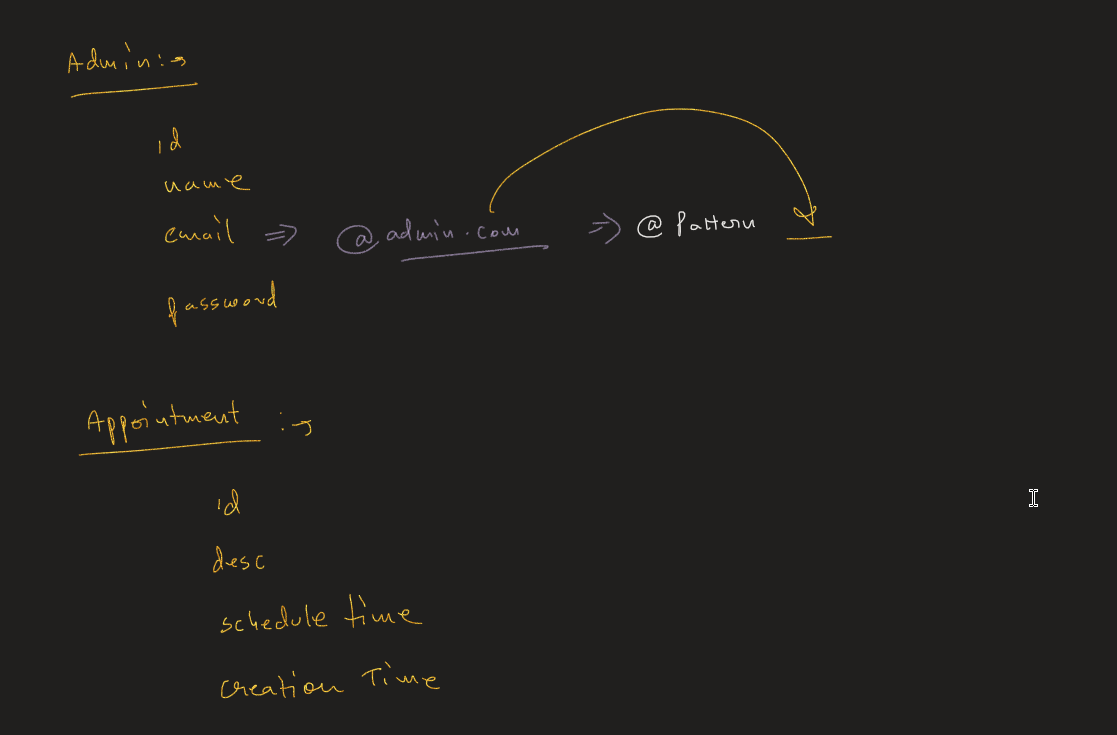 Admin :→
id
name
email ⇒ @admin.com ⇒ @Pattern
password
Appointment :→
id
desc
schedule time
creation Time